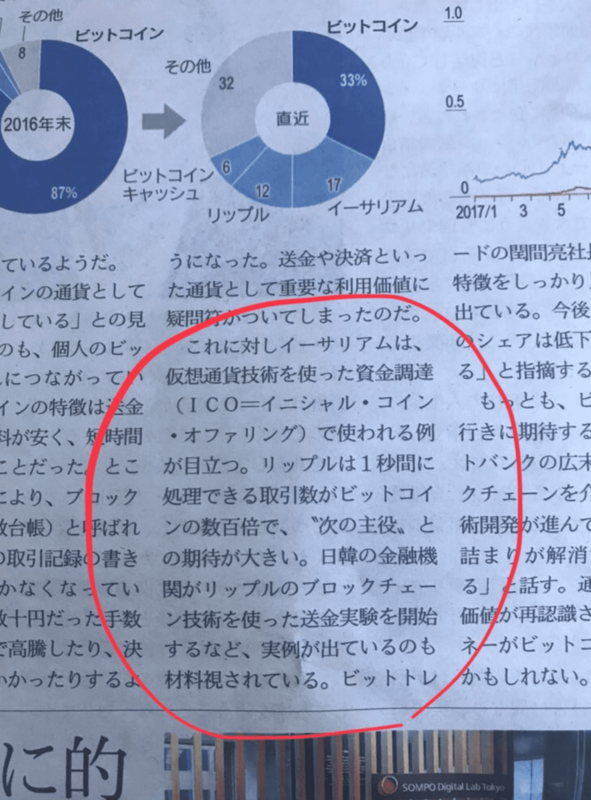 その他
8
ビットコイン
2016年末
87%
ビットコイン
33%
その他
32
直近
6
12
17
ビットコイン
キャッシュ
リップル
イーサリアム
1.0
0.5
0
2017/1 3 5
ているようだ。
インの通貨として
している」との見
のも、個人のビッ
につながってい
インの特徴は送金
料が安く、短時間
ことだった。とこ
により、ブロック
数台帳）と呼ばれ
の取引記録の書き
かなくなってい
数十円だった手数
で高騰したり、決
かかったりするよ
うになった。送金や決済といっ
た通貨として重要な利用価値に
疑問符がついてしまったのだ。
これに対しイーサリアムは、
仮想通貨技術を使った資金調達
（ＩＣＯ＝イニシャル・コイン
・オファリング）で使われる例
が目立つ。リップルは１秒間に
処理できる取引数がビットコイ
ンの数百倍で、〝次の主役〟と
の期待が大きい。日韓の金融機
関がリップルのブロックチェー
ン技術を使った送金実験を開始
するなど、実例が出ているのも
材料視されている。ビットトレ
ードの閏間亮社長
特徴をしっかり
出ている。今後
のシェアは低下
る」と指摘する
もっとも、ビ
行きに期待する
トバンクの広末
クチェーンを介
術開発が進んで
詰まりが解消
る」と話す。通
価値が再認識さ
ネーがビットコ
かもしれない。
に的
SOMPO Digital Lab Tokyo